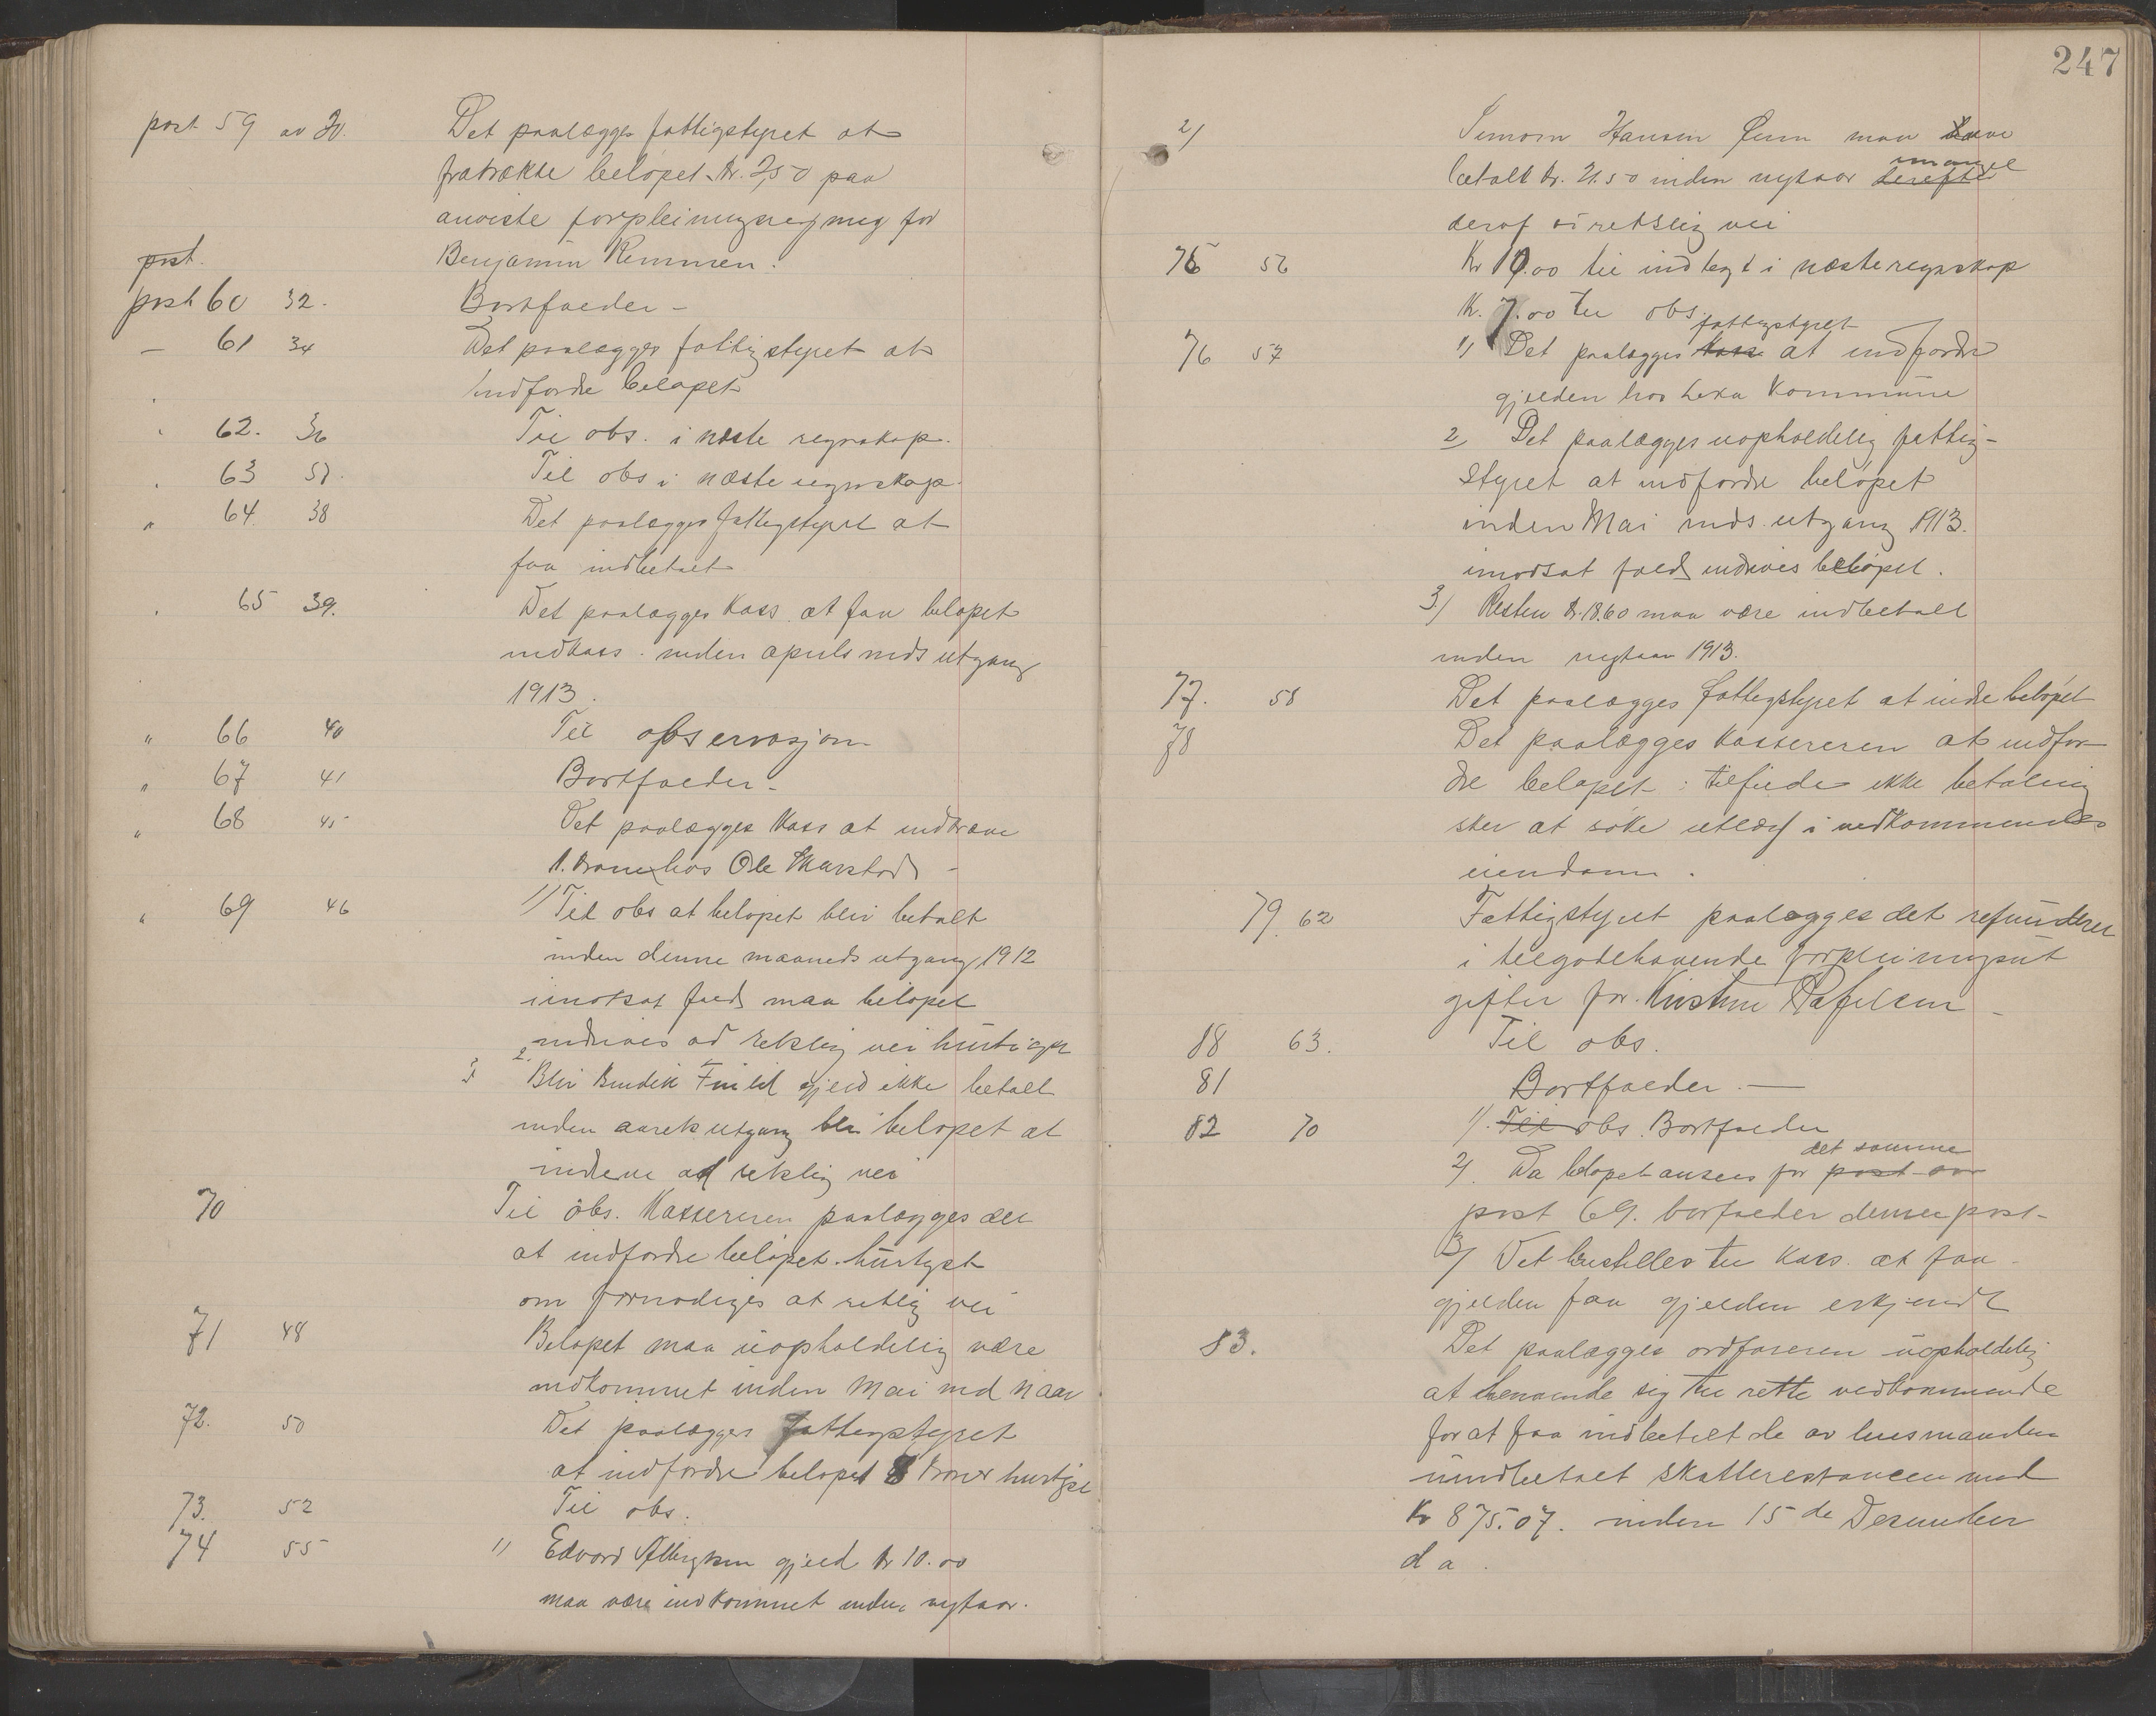 post 59 av 30. Det paalægges fattigstyret at
fratrække beløpet kr. 2,50 paa
anviste forpleiningsregning for
post. Benjamin Remmen.
post 60 32. Bortfalder –
— 61 34 Det paalægges fattigstyret at
indfordre beløpet
" 62. 36 Til obs. i næste regnskap.
" 63 37. Til obs i næste regnskap.
" 64. 38 Det paalægges fattigstyret at
faa indbetalt
" 65 39. Det paalægges kass. at faa beløpet
indkass. inden aprils mds utgang
1913.
" 66 40 Til observasjon
" 67 41 Bortfalder –
" 68 45 Det paalægges kass at indkræve
1. krone hos Ole –
" 69 46 1) Til obs at beløpet blir betalt
inden denne maaneds utgang 1912
imotsat fald maa beløpet
indrives ad retslig vei hurtigst
2. Blir Bendik gjeld ikke betalt
inden aarets utgang blir beløpet at
inddrive ad retslig vei
70 Til obs. Kassereren paalægges det
at indfordre beløpet hurtigst
om fornødiges at retslig vei
71 48 Beløpet maa uopholdelig være
indkommet inden Mai md naar
72. 50 Det paalægges fattigstyret
at indfordre beløpet 8 kroner hurtigst
73. 52 Til obs.
74 55 1) Edvard gjeld kr 10.00
maa være indkommet inden nytaar.
247
2/ Simon Hansen maa have
betalt kr. 21.50 inden nytaar derefter imangel
deraf vi retslig vei
75 56 kr 10.00 til indtegt i næste regnskap
kr. 7.00 til obs.
76 57 1) Det paalægges kass fattigstyret at indfordre
gjelden hos Leka kommune
2 Det paalægges uopholdelig fattig-
styret at indfordre beløpet
inden Mai mds. utgang 1913.
imodsat fald indrives beløpet.
3) Resten kr. 18.60 maa være indbetalt
inden nytaar 1913.
77. 58 Det paalægges fattigstyret at inddr beløpet
78 Det paalægges kassereren at indfor-
dre beløpet i tilfælde ikke betaling
sker at søke utlæg i vedkommendes
eiendom.
79. 62 Fattigstyret paalægges det refunderer
i tilgodehavende forpleiningsut
gifter for Kristine Rafelsen –
88 63. Til obs.
81 Bortfalder. —
82 70 1). Til obs. Bortfalder
2). Da beløpet ansees for post av det samme
post 69. borfalder denne post –
3) Det henstilles til kass. at faa
gjelden faa gjelden erkjendt
83. Det paalægges ordføreren uopholdelig
at henvende sig til rette vedkommende
for at faa indbetalt de av lensmanden
uindbetalt skatterestancen med
kr 875.07. inden 15de Desember
d a.